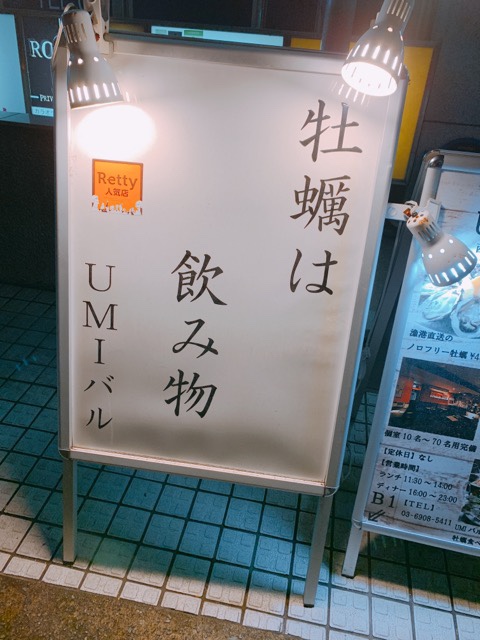 牡蠣は
飲み物
UMIバル
Retty
人気店
漁港直送の
ノロフリー牡蠣¥4
個室10名〜70名用完備
【定休日】なし
【営業時間】
ランチ 11:30〜14:00
ディナー 16:00〜23:00
B1【TEL】
03-6908-5411
UMIバル
牡蠣食べ